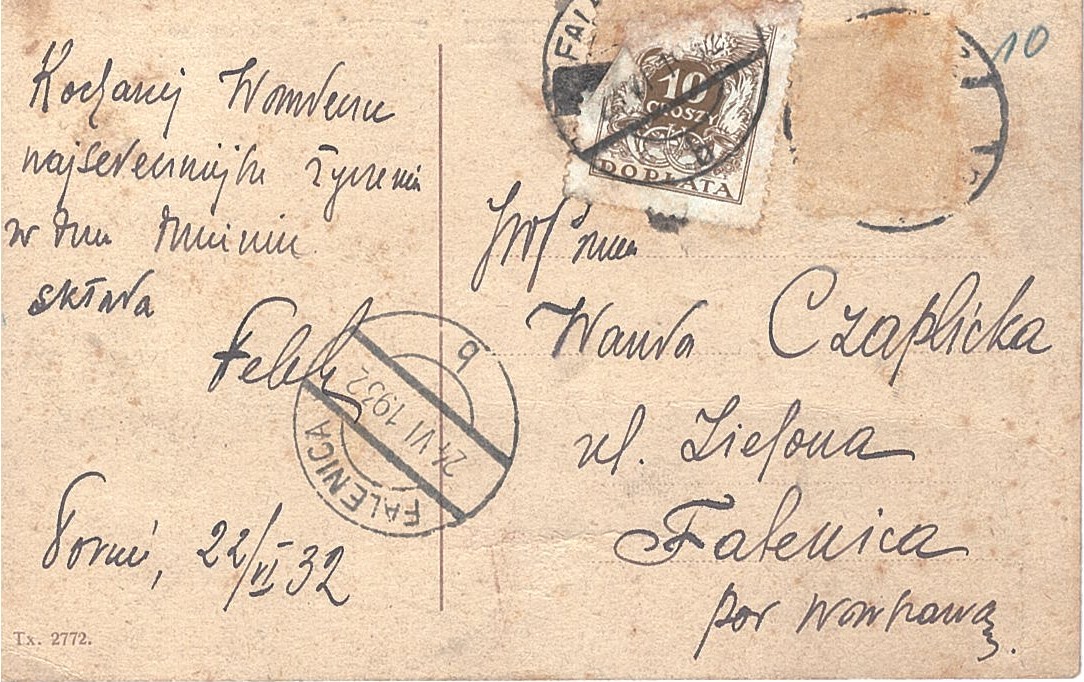 Kochanej Wandeczce
najserdeczniejsze życzenia
w dniu imienin
składa
Toruń, 22/VI 32
Tx. 2772.
10
FAL
10
GROSZY
DOPŁATA
b
24 VI 1932
FALENICA
b
Wanda Czaplicka
ul. Zielona
Falenica
pod Warszawą